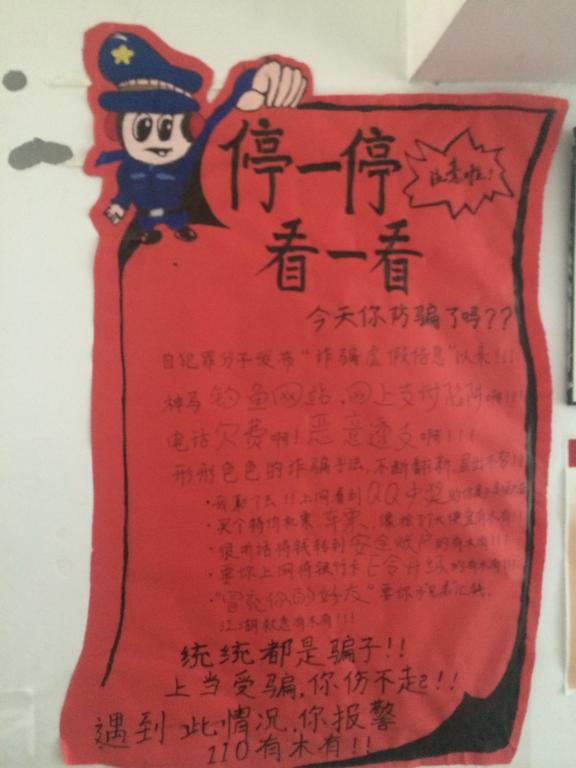 停一停
注意啦!
看一看
今天你防骗了吗??
自犯罪分子发布“诈骗虚假信息”以来!!!
神马钓鱼网站、网上支付陷阱啊!!!
电话欠费啊!恶意透支啊!!!
形形色色的诈骗手法,不断翻新,层出不穷!!
·我勒了去!!上网看到QQ中奖的
·买个特价机票、车票、
·很听话将钱转到安全账户的有木有!!!
·要你上网将银行卡E令升级的有木有!!!
·“冒充你的好友”要你 汇钱、
江湖救急有木有!!!
统统都是骗子!!
上当受骗,你伤不起!!
遇到此情况,你报警
110有木有!!